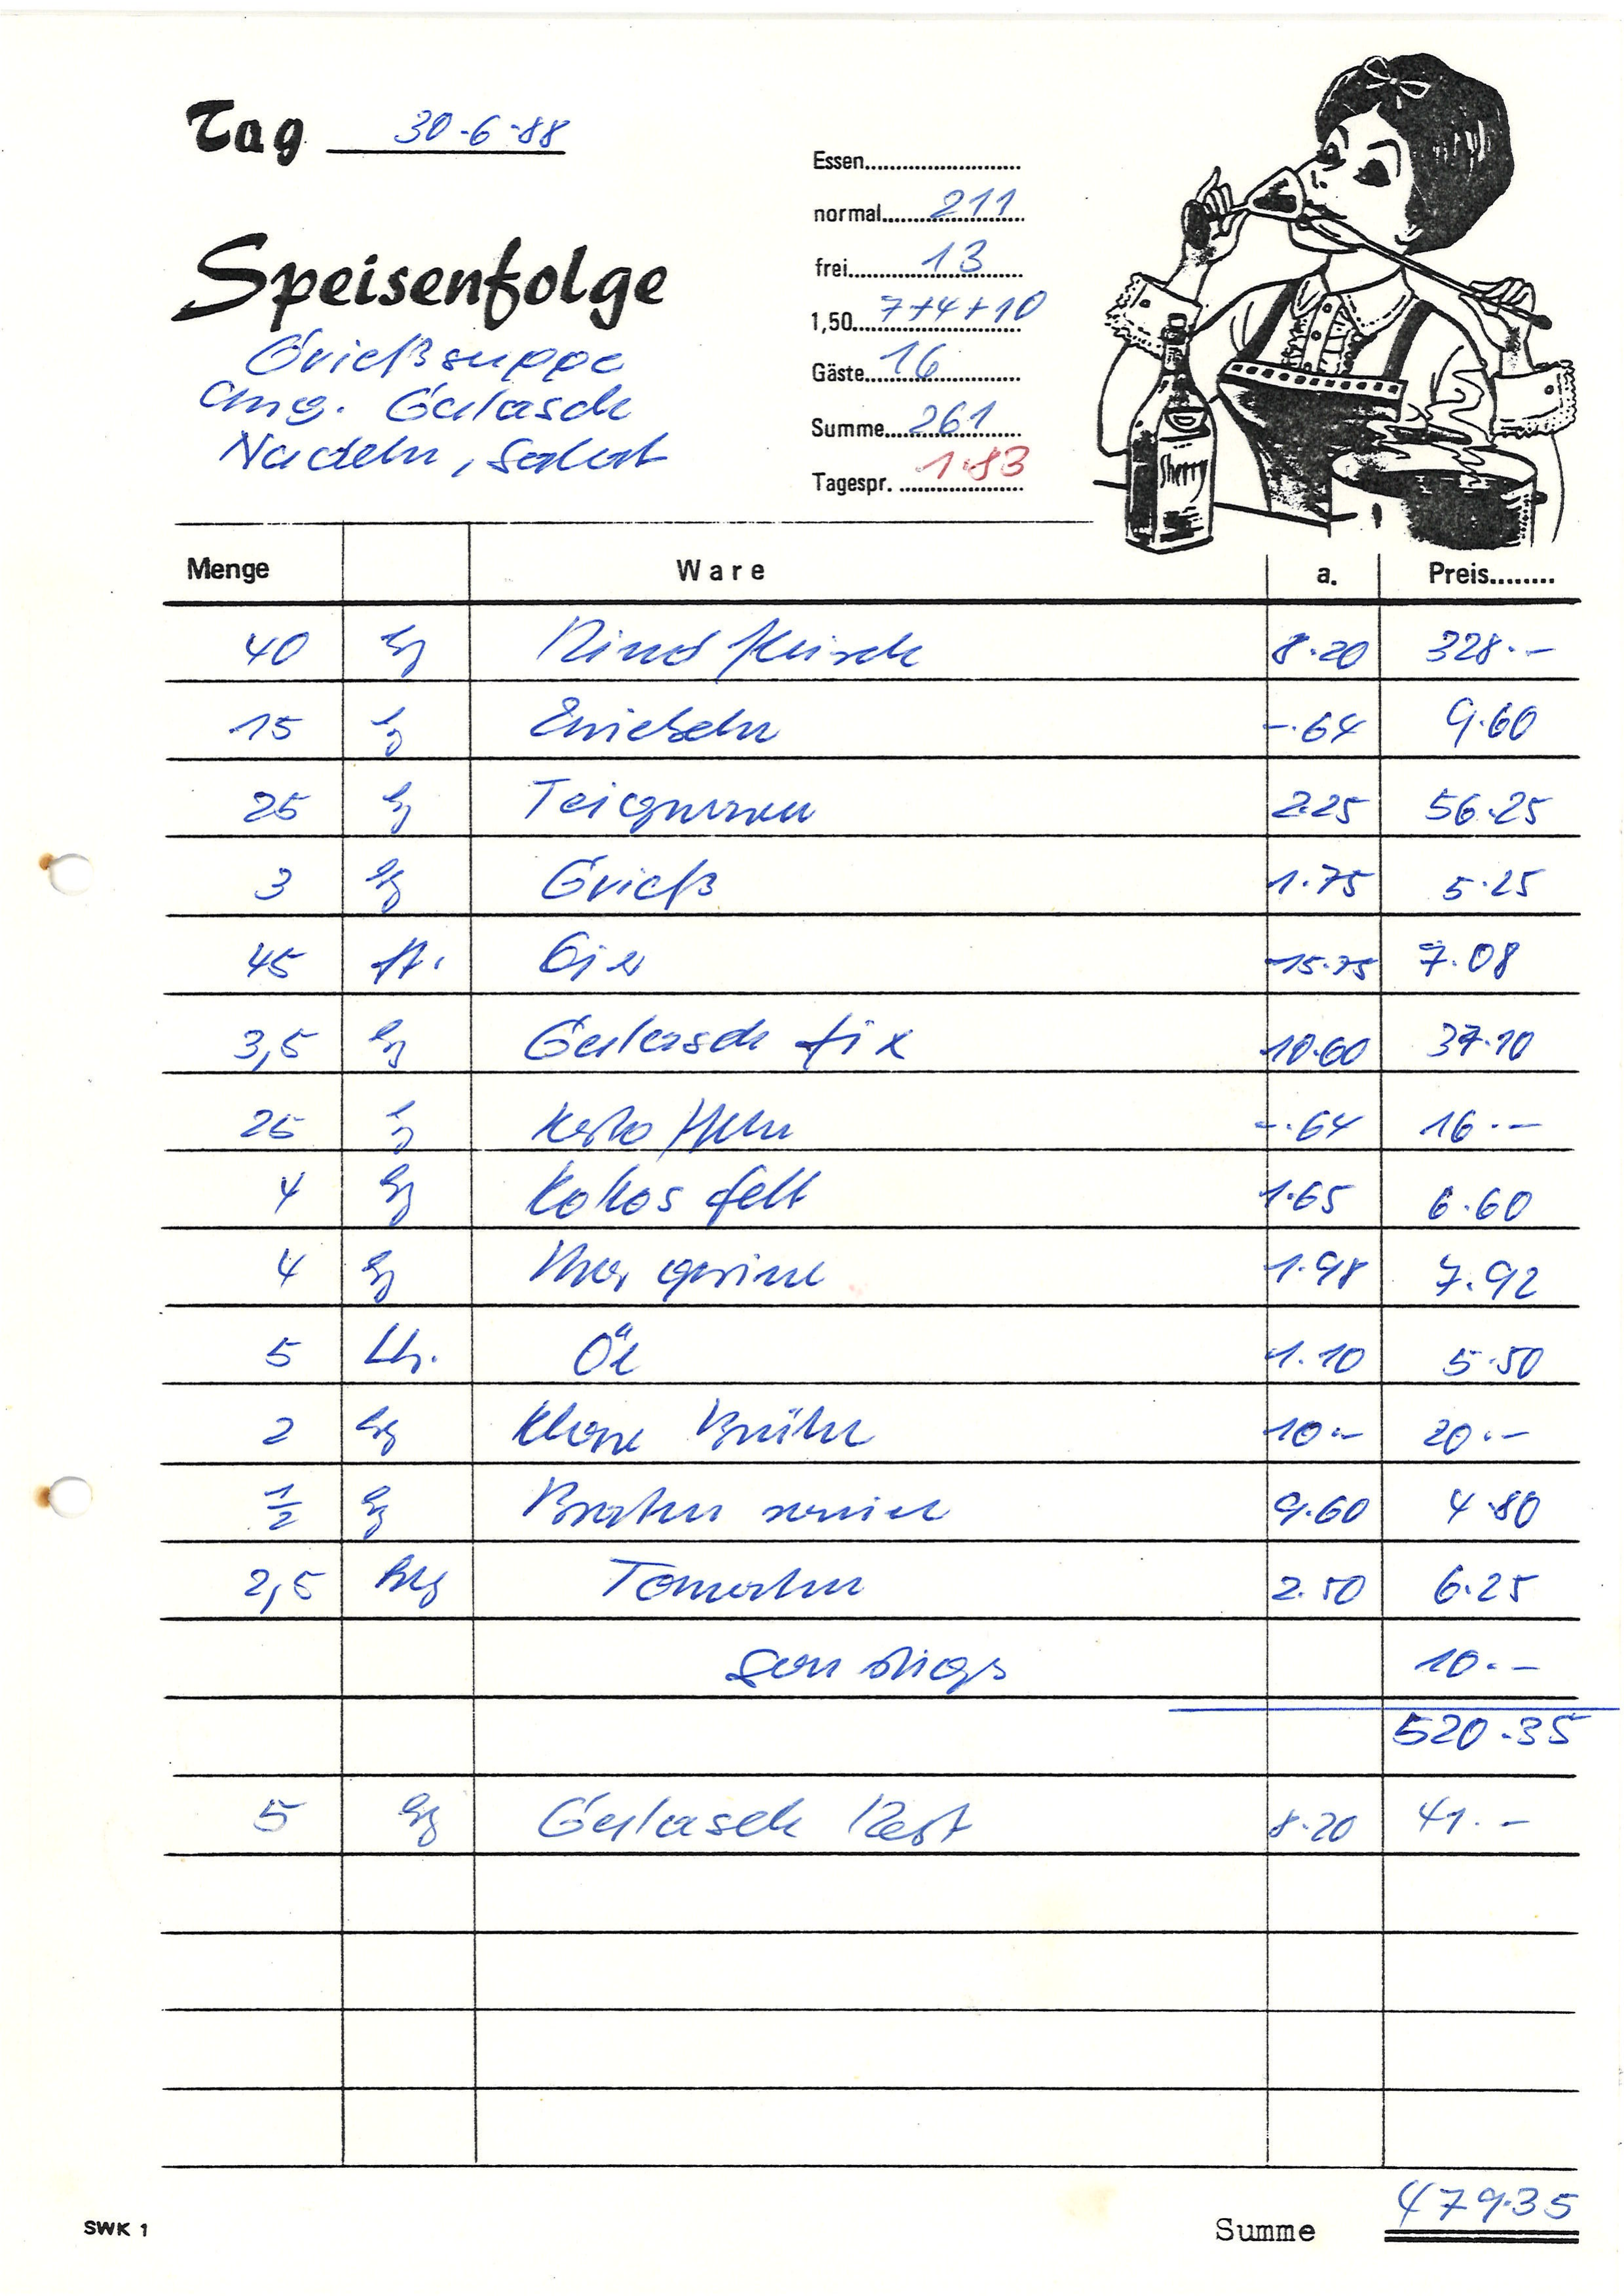 Tag 30-6-88
Essen
normal 211
frei 13
1,50 7+4+10
Gäste 16
Summe 261
Tagespr. 1.83
Speisenfolge
Grießsuppe
Ung. Gulasch
Nudeln, Salat
Sherry
Menge Ware a. Preis
40 kg Rindfleisch 8.20 328.-
15 kg Zwiebeln -.64 9.60
25 kg Teigwaren 2.25 56.25
3 kg Grieß 1.75 5.25
45 St. Eier -15.75 7.08
3,5 kg Gulasch fix 10.60 37.10
25 kg Kartoffeln -.64 16.-
4 kg Kokosfett 1.65 6.60
4 kg Margarine 1.98 7.92
5 Ltr. Öl 1.10 5.50
2 kg Klare Brühe 10.- 20.-
1/2 kg Braten 9.60 4.80
2,5 Tomaten 2.50 6.25
Sonstiges 10.-
520.35
5 kg Gulasch Rest 8.20 41.-
SWK 1
Summe 479.35